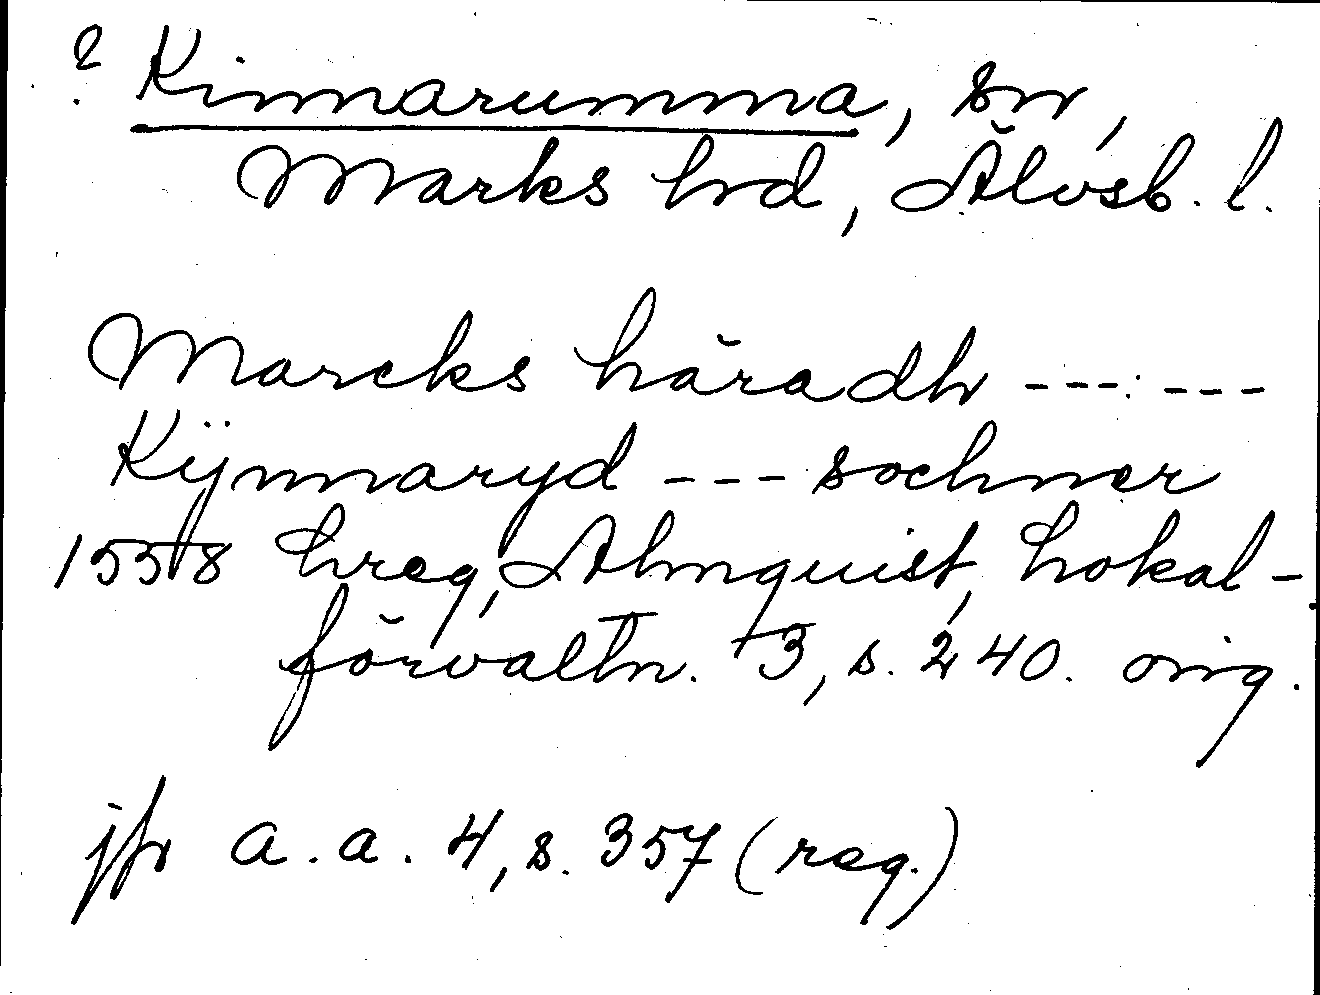 ? Kinnarumma, sn,
Marks hd, Älvsb. l.
Marcks häradh --- ---
Kÿnnaryd --- sochner
1558 hreg, Almquist, Lokal-
förvaltn. 3, s. 240. orig.
jfr a.a. 4, s. 357 (reg.)